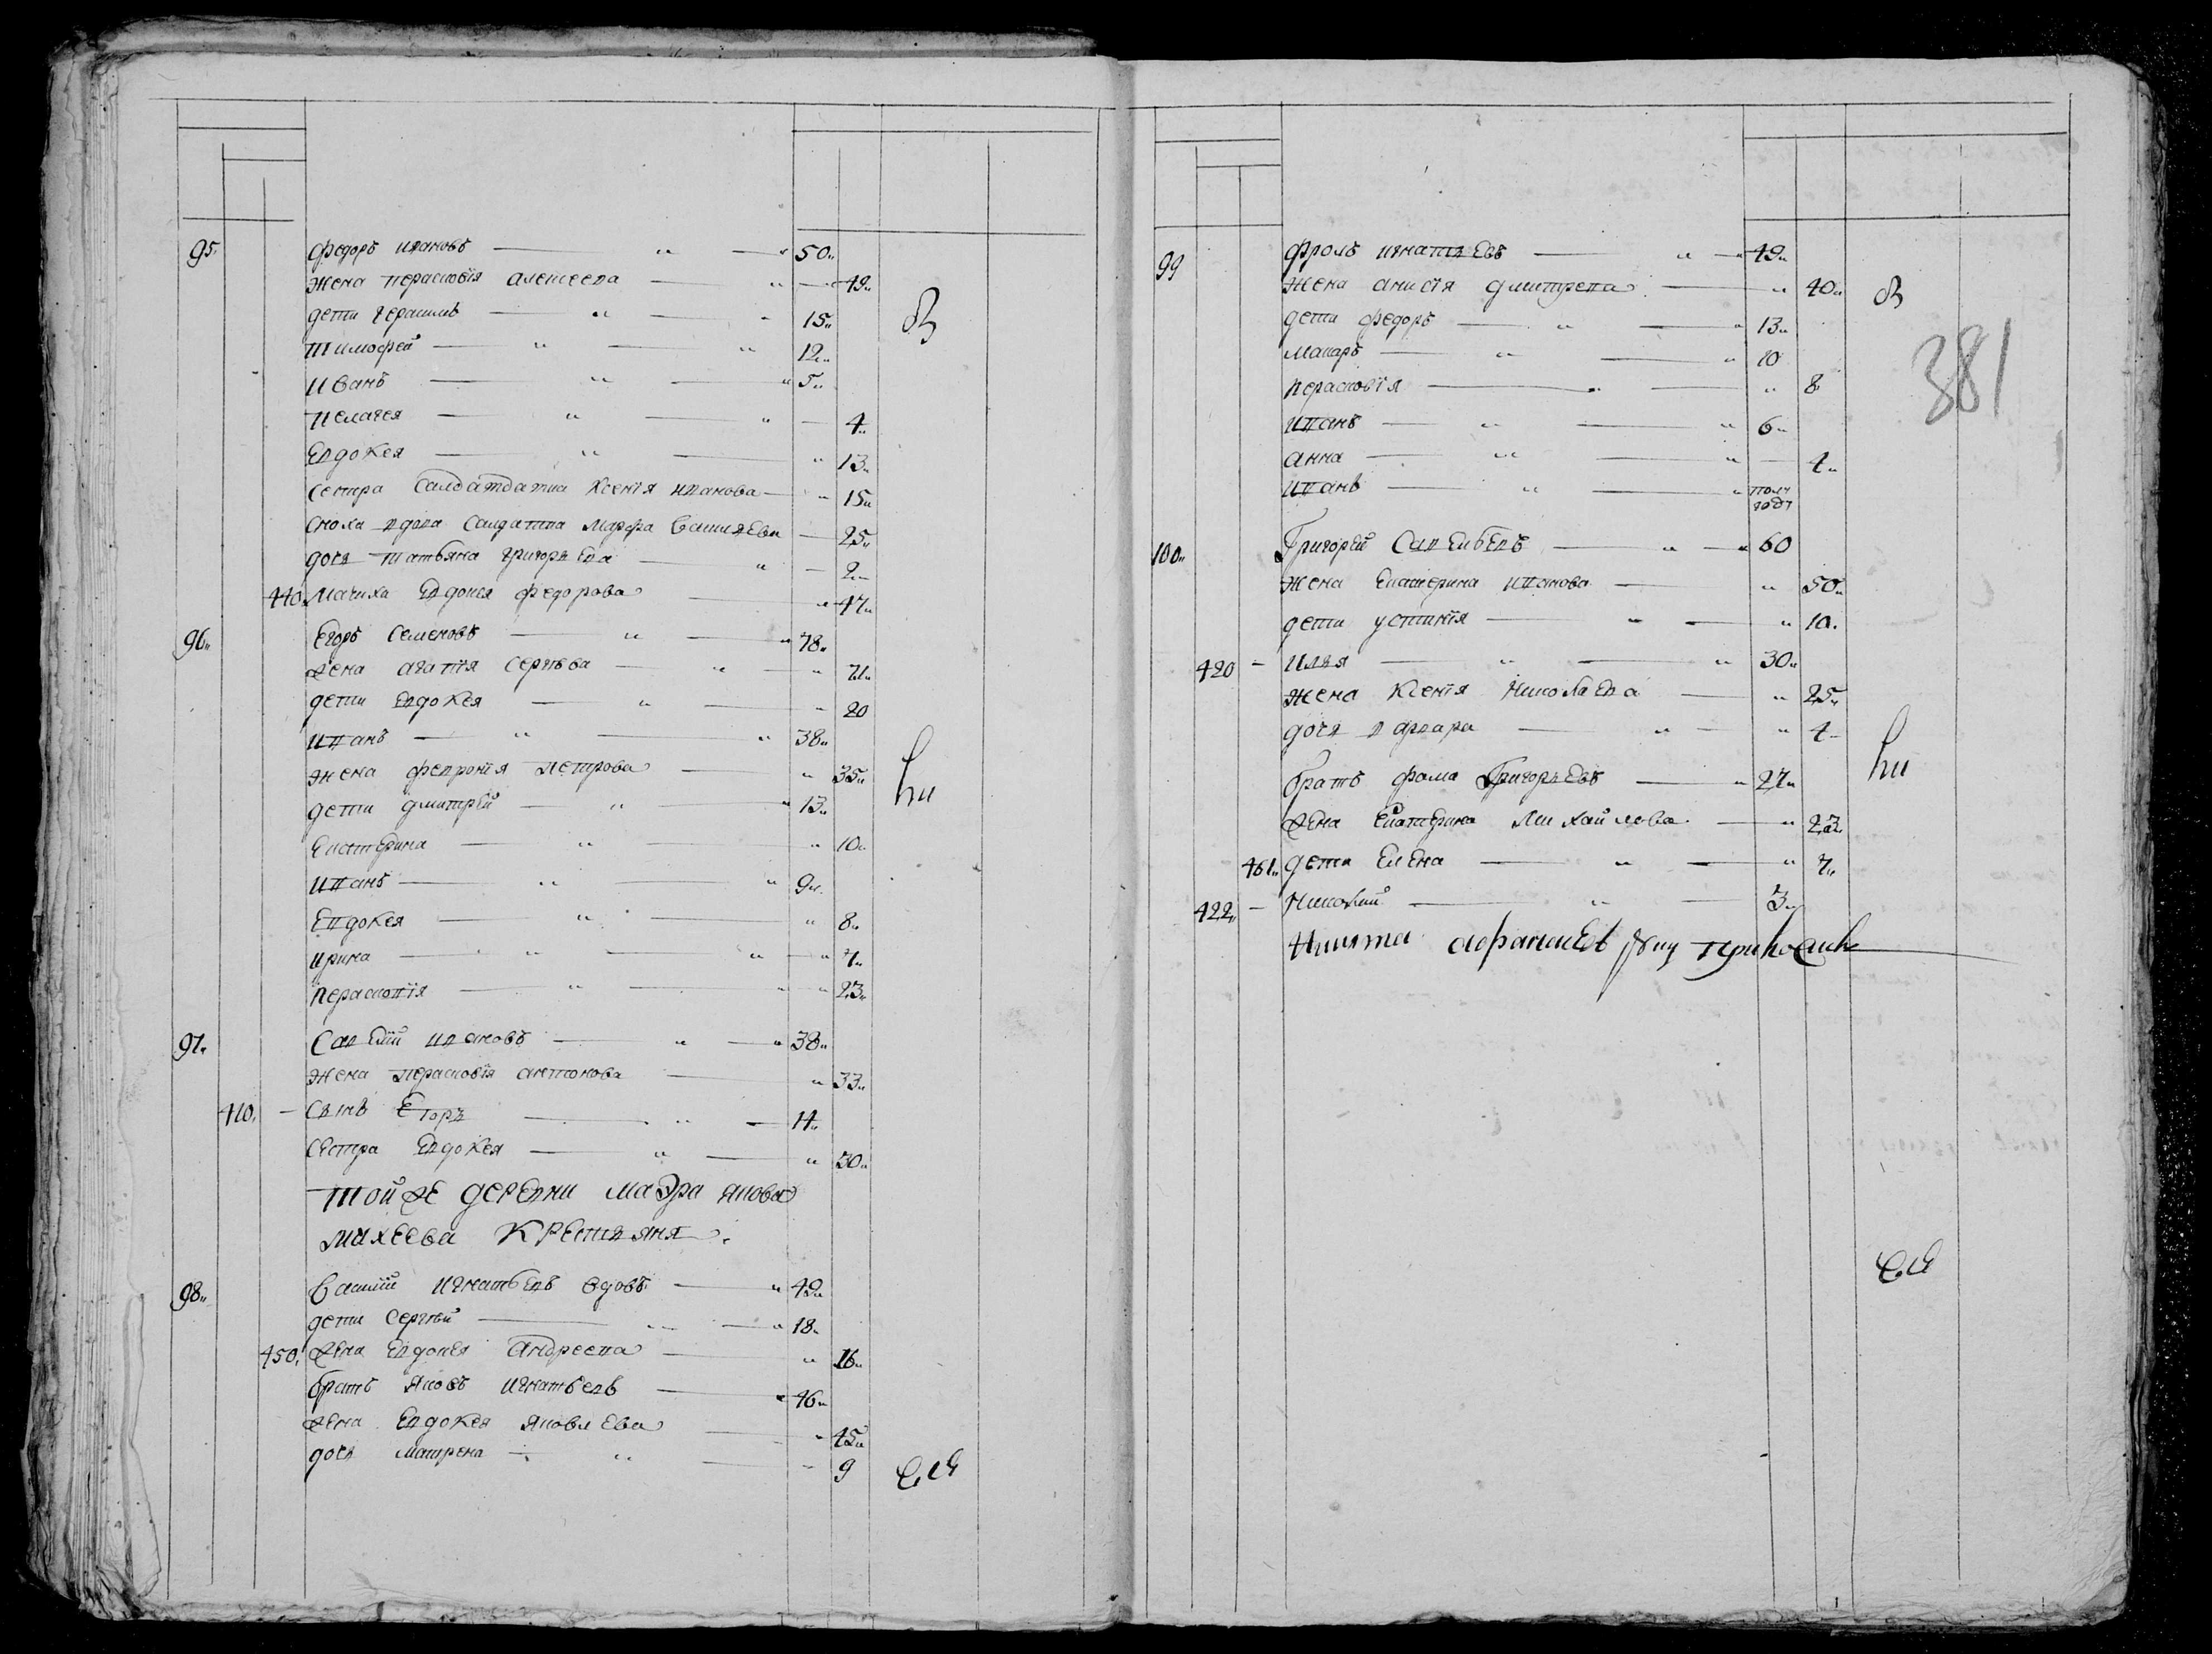 95. Федоръ Ивановъ — " — " 50"
Жена Перасковія Алексеева — " — 49"
дети Герасимъ — " — " 15"
Тимофей — " — " 12"
Иванъ — " — " 5"
Пелагея — " — " — 4"
Евдокея — " — " 13"
Сестра Салдатка Ксенія Иванова — " 15"
Сноха вдова Салдатка Марфа Василяева — 25"
дочь Татьяна Григорьева — " — 2"
440. Мачиха Евдокея Федорова — " 47"
96" Егоръ Семеновъ — " — " 78"
Жена Агапія Сергѣева — " — " 71"
дети Евдокея — " — " 20
Иванъ — " — " 38"
Жена Февронія Петрова — " 35"
дети Дмитрей — " — " 13"
Екатерина — " — " 10"
Иванъ — " — " 9"
Евдокея — " — " 8"
Ирина — " — " — " 4"
Перасковія — " — " 23"
97" Савелій Ивановъ — " — " 38"
Жена Перасковія Антонова — " 33"
410. — Сынъ Егоръ — " — 14"
Сестра Евдокея — " — " 30"
Той же деревни маэра Якова
Михеева крестьяня.
98" Василій Игнатьевъ вдовъ — " 42"
дети Сергѣй — " — " 18"
450. Жена Евдокея Андреева — " 16"
братъ Яковъ Игнатьевъ — " 46"
Жена Евдокея Яковлева — " 45"
дочь Матрена — " — " 9
99 Фролъ Игнатьевъ — " — " 49"
Жена Анисія Дмитрева — " 40"
дети Федоръ — " — " 13"
Макаръ — " — " 10
Перасковія — " — " 8
Иванъ — " — " 6"
Анна — " — " — 4"
Иванъ — " — " полъ
года
381
100" Григорей Савельевъ — " — " 60
Жена Екатерина Иванова — " 50"
дети Устинія — " — " 10.
420 — Илья — " — " 30"
Жена Ксенія Николаева — " 25"
дочь Варвара — " — " 4"
братъ Фома Григорьевъ — " 27"
Жена Екатерина Михайлова — " 23"
461" дети Елена — " — " 7"
422" — Николай — " — 3"